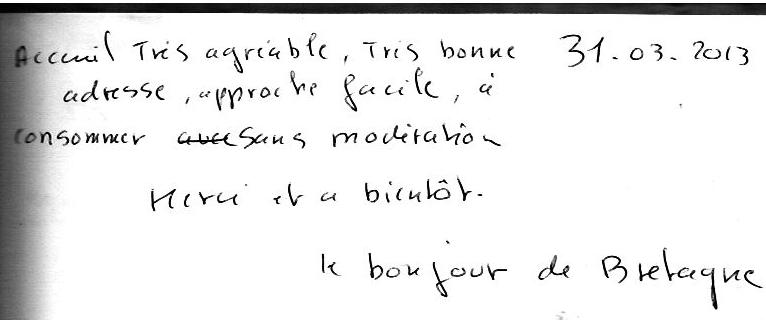 Accueil Très agréable, Très bonne 31.03.2013
adresse, approche facile, à
consommer avec sans modération
Merci et a bientôt.
le bonjour de Bretagne